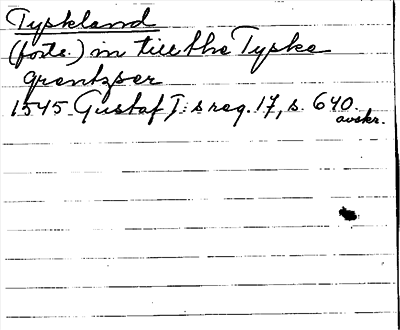 Tyskland
(forts.) in till the Tyske
grentzser
1545 Gustaf I:s reg. 17, s. 640.
avskr.